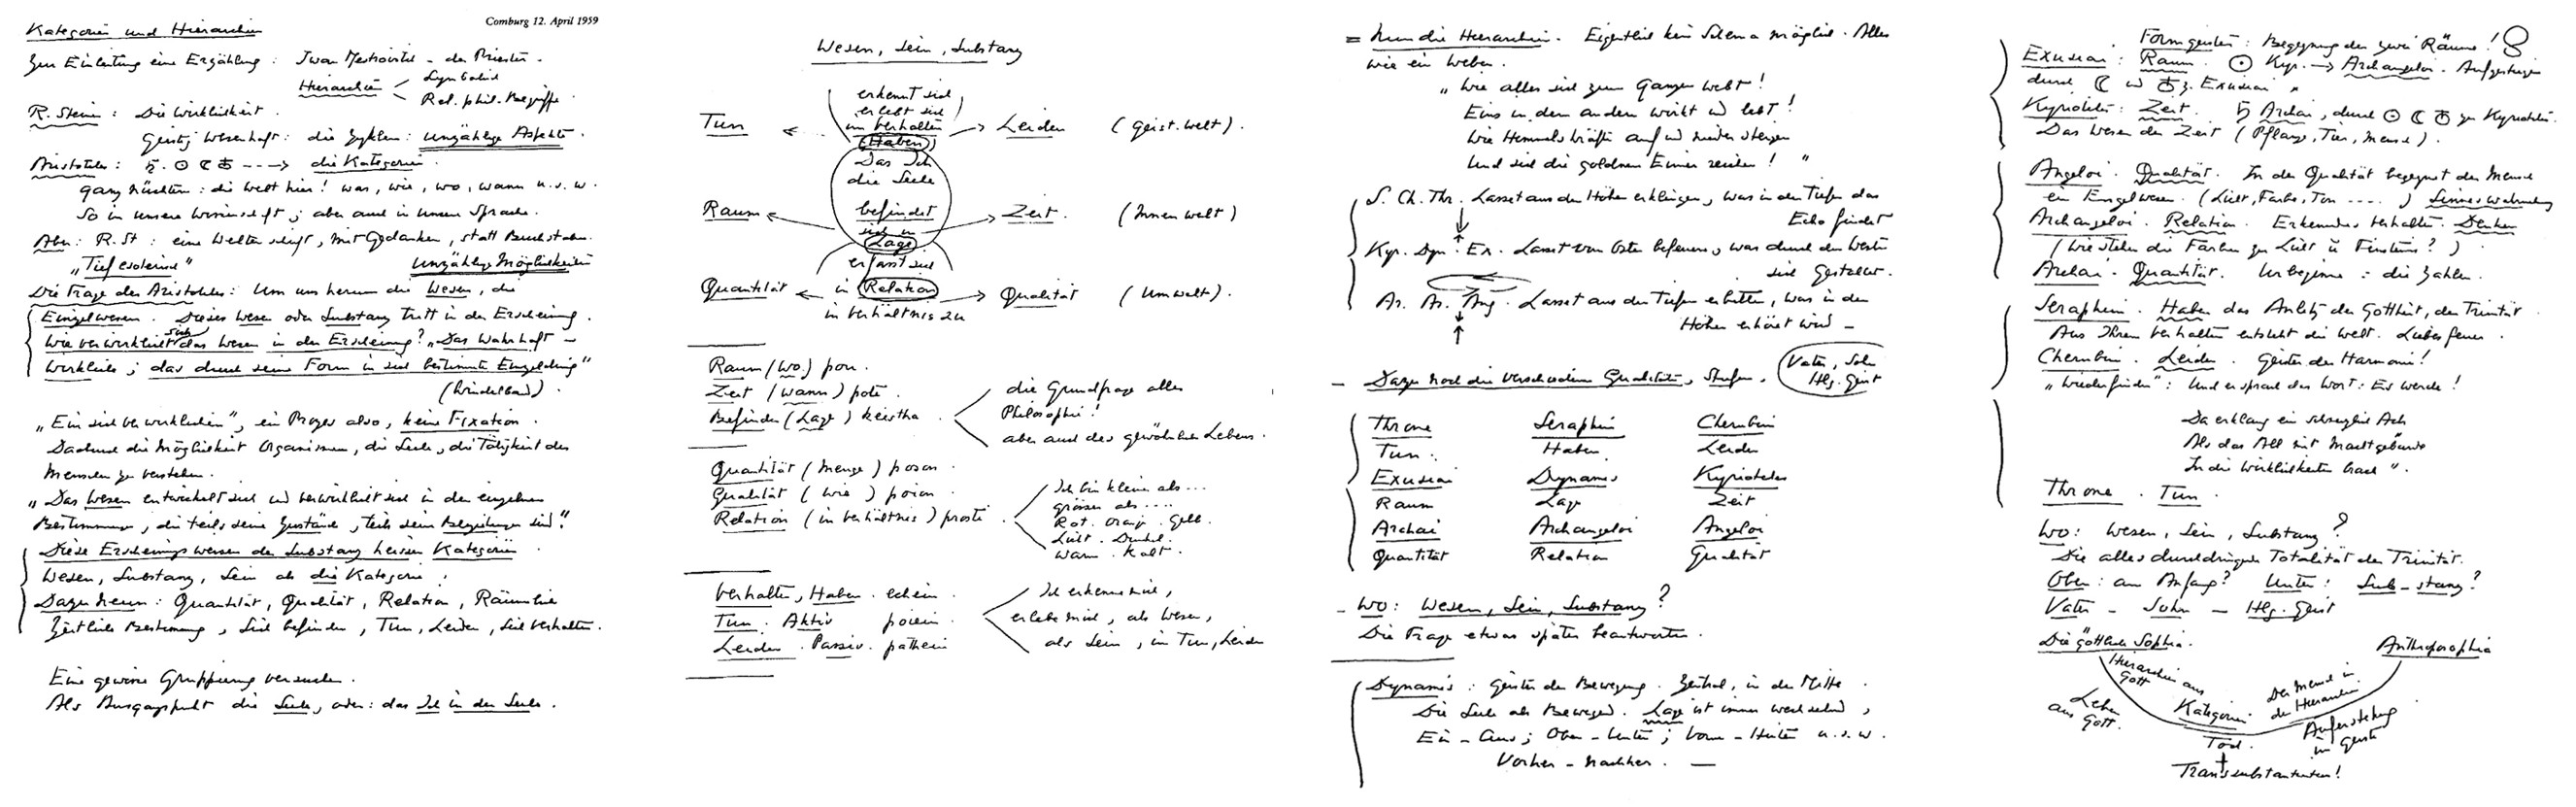 Comburg 12. April 1959
Kategorien und Hierarchien
Zur Einleitung eine Erzählung: Iwan Mestrovic - der Priester.
Hierarchien < Symbolik
Rel. phil. Begriffe
R. Steiner: Die Wirklichkeit.
Geistig wesenhaft: die Zyklen: unzählige Aspekte.
Aristoteles: ♄. ☉ ☾ ♁ ---> die Kategorien.
ganz nüchtern: die Welt hier! was, wie, wo, wann u.s.w.
So in unsere Wissenschaft; aber auch in unsere Sprache.
Aber: R. St: eine Weltenschrift, mit Gedanken, statt Buchstaben.
„Tief esoterisch" Unzählige Möglichkeiten
Die Frage des Aristoteles: Um uns herum die Wesen, die
Einzelwesen. Dieses Wesen oder Substanz tritt in der Erscheinung.
Wie verwirklicht sich das Wesen in der Erscheinung? „Das Wahrhaft -
wirkliche; das durch seine Form in sich bestimmte Einzelding"
(Windelband).
„Ein sich verwirklichen", ein Prozes also, keine Fixation.
Dadurch die Möglichkeit Organismen, die Seele, die Tätigkeit des
Menschen zu verstehen.
„Das Wesen entwickelt sich und verwirklicht sich in den einzelnen
Bestimmungen, die teils seine Zustände, teils sein Beziehungen sind."
Diese Erscheinungsweisen der Substanz heissen Kategorien.
Wesen, Substanz, Sein als die Kategorie:
Dazu neun: Quantität, Qualität, Relation, Räumliche
Zeitliche Bestimmung, Sich befinden, Tun, Leiden, Sich Verhalten.
Eine gewisse Gruppierung versuchen.
Als Ausgangspunkt die Seele, oder: das Ich in der Seele.
Wesen, Sein, Substanz
erkennt sich
erlebt sich
im Verhalten
Tun <- (Haben) -> Leiden (geist. Welt).
Das Ich
die Seele
Raum <- befindet -> Zeit. (Innenwelt)
sich in
Lage
erfasst sich
Quantität <- in Relation -> Qualität (Umwelt).
in Verhältnis zu
Raum (wo) pou.
Zeit (wann) pote.
Befinden (Lage) keistha
die Grundfrage aller
Philosophie!
aber auch des gewöhnlichen Lebens.
Quantität (Menge) poson.
Qualität (wie) poion.
Relation (in Verhältnis) prosti.
Ich bin kleiner als ...
grösser als ....
Rot. Orange. Gelb.
Licht. Dunkel.
Warm. Kalt.
Verhalten, Haben. echein.
Tun. Aktiv poiein.
Leiden. Passiv. pathein
Ich erkenne mich,
erlebe mich, als Wesen,
als Sein, in Tun, Leiden
= Nun die Hierarchien. Eigentlich kein Schema möglich. Alles
wie ein Weben.
„Wie alles sich zum Ganzen webt!
Eins in dem andern wirkt und lebt!
Wie Himmelskräfte auf und nieder steigen
Und sich die goldnen Eimer reichen!"
S. Ch. Thr. Lasset aus den Höhen erklingen, was in den Tiefen das
Echo findet
Kyr. Dyn. Ex. Lasset vom Osten befeuern, was durch den Westen
sich gestaltet.
Ar. Ar. Ang. Lasset aus den Tiefen erbitten, was in den
Höhen erhöret wird -
- Dazu noch die verschiedene Qualitäten, Stufen. Vater, Sohn
Hlg. Geist
Throne Seraphim Cherubim
Tun. Haben. Leiden
Exusiai Dynamis Kyriotetes
Raum Lage Zeit
Archai Archangeloi Angeloi
Quantität Relation Qualität
- Wo: Wesen, Sein, Substanz?
Die Frage etwas später beantworten.
Dynamis: Geister der Bewegung. Zentral, in der Mitte.
Die Seele als Bewegend. Lage ist immer wechselnd,
Ein - Aus; Oben - Unten; Vorn - Hinten u.s.w.
Vorher - Nachher. —
Formgeister: Begegnung der zwei Räume!
Exusiai: Raum. ☉ Kyr. -> Archangeloi. Aufgestiegen
durch ☾ und ♁ z. Exusiai
Kyriotetes: Zeit. ♄ Archai, durch ☉ ☾ ♁ zu Kyriotetes.
Das Wesen der Zeit (Pflanze, Tier, Mensch).
Angeloi. Qualität. In der Qualität begegnet der Mensch
ein Engelwesen. (Licht, Farbe, Ton ....) Sinneswahrnehmung
Archangeloi. Relation. Erkennendes Verhalten. Denken
(Wie stehen die Farben zu Licht u Finsternis?)
Archai. Quantität. Urbeginne: die Zahlen.
Seraphim. Haben das Antlitz der Gottheit, der Trinität.
Aus Ihrem Verhalten entsteht die Welt. Liebesfeuer.
Cherubim. Leiden. Geister der Harmonie!
„Wiederfinden": Und er sprach das Wort: Es werde!
Da erklang ein schmerzlich Ach
Als das All mit Machtgebärde
In die Wirklichkeiten brach".
Throne. Tun.
Wo: Wesen, Sein, Substanz?
Die alles durchdringende Totalität der Trinität.
Oben: am Anfang? Unten: Sub-stanz?
Vater - Sohn - Hlg. Geist
Die göttliche Sophia. Anthroposophia
Hierarchien aus Gott
Der Mensch in den Hierarchien
Leben aus Gott.
Kategorien
Auferstehung im Geiste
Tod.
Transsubstantiation!